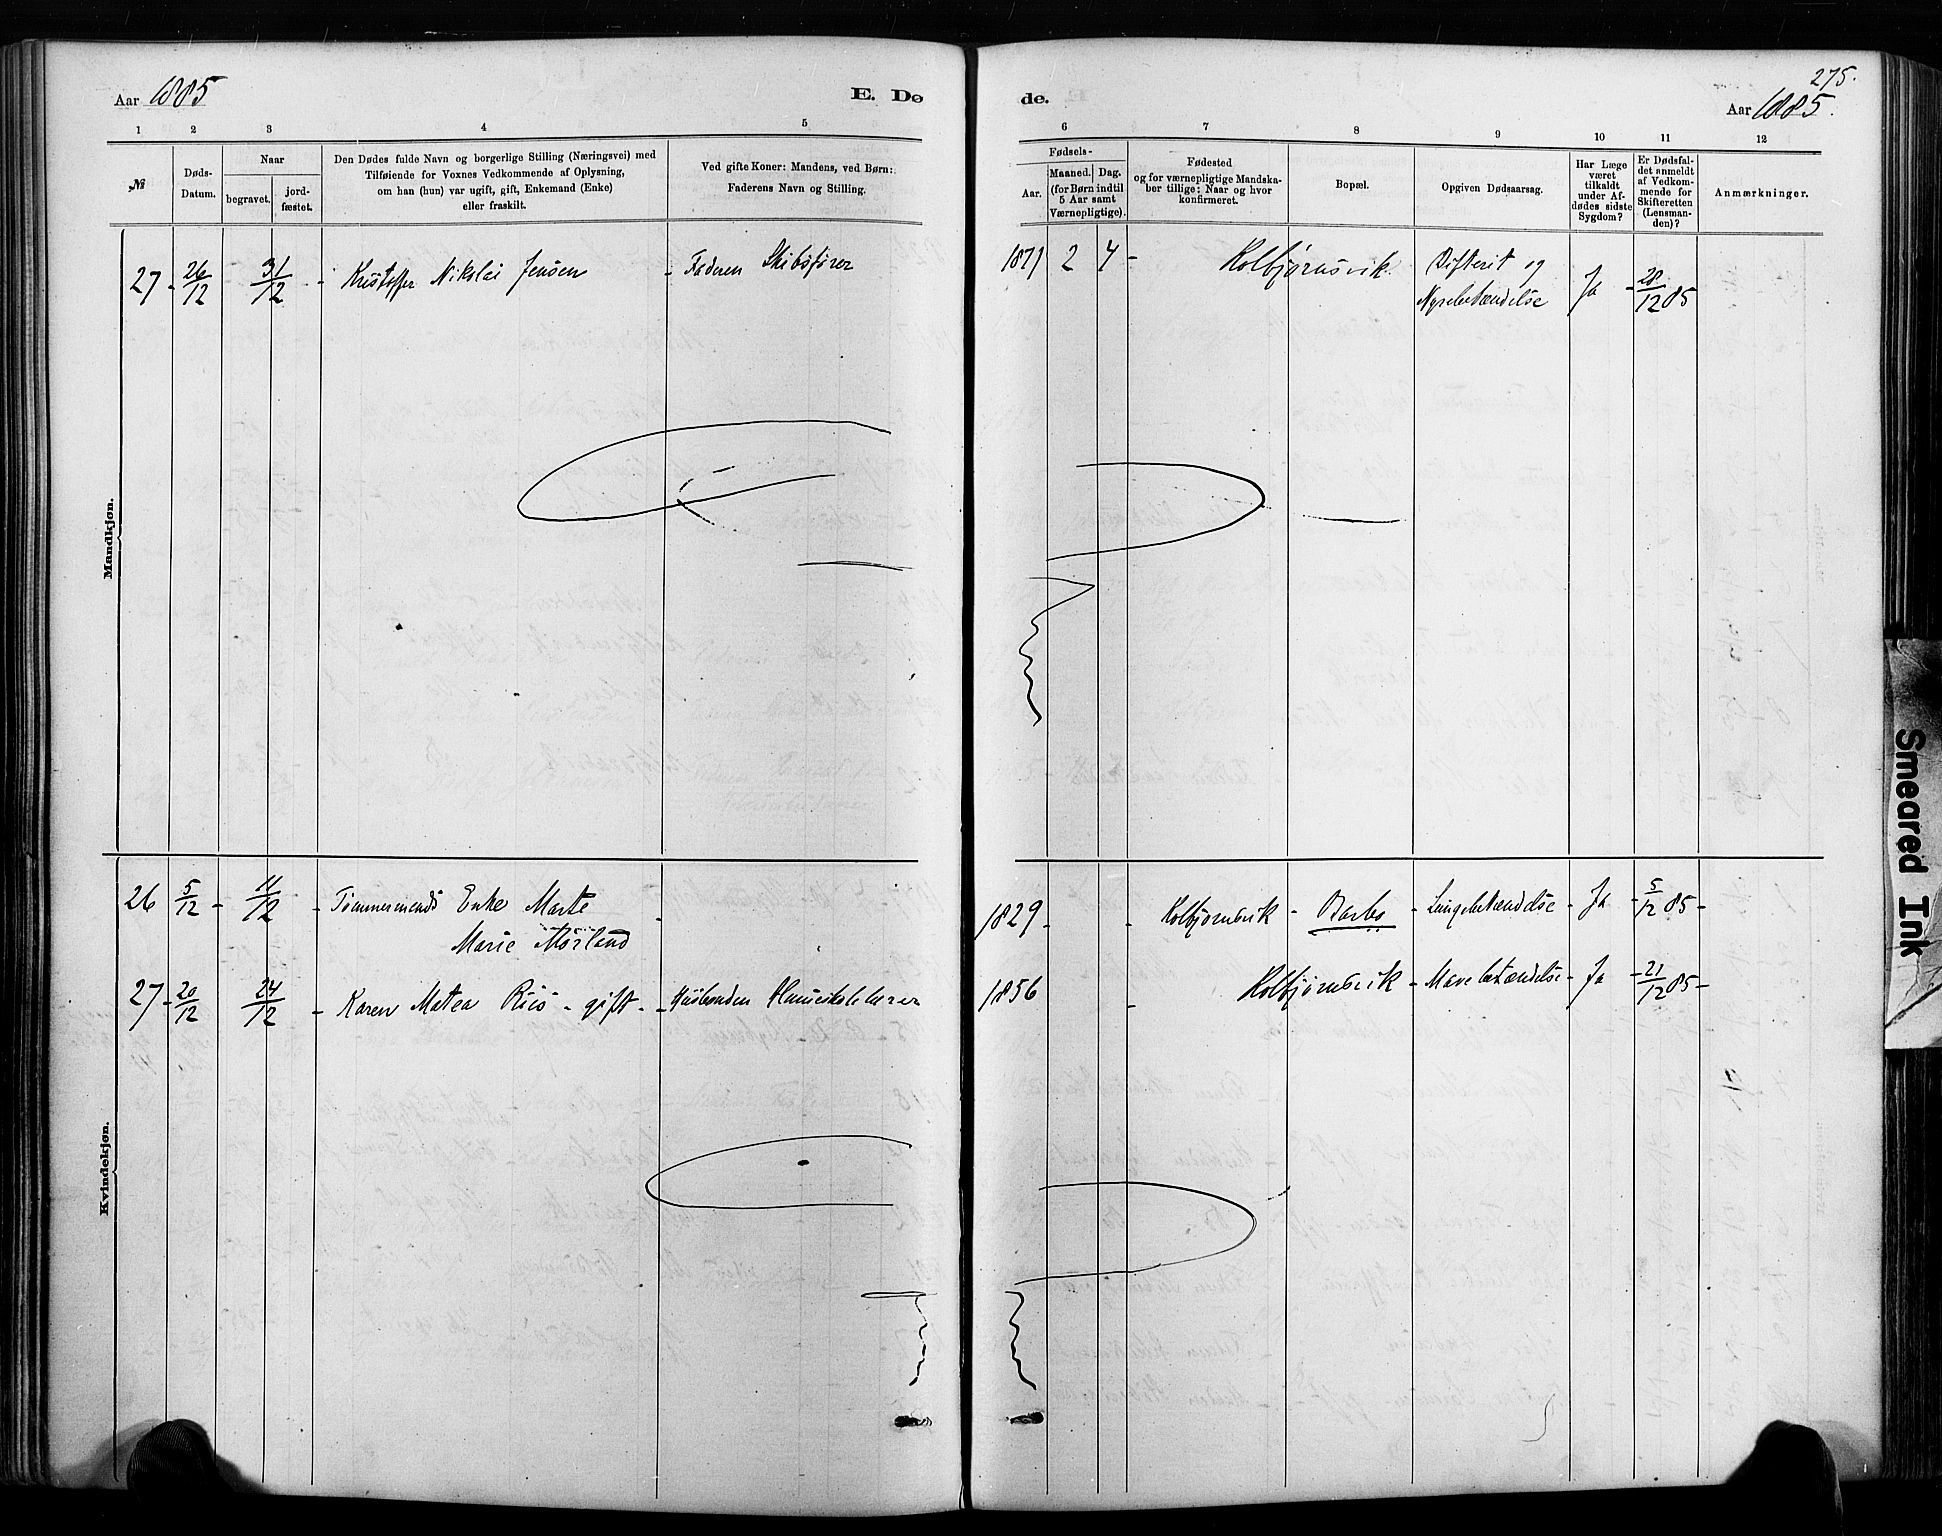 Aar 1885
E. Dø
de.
275.
Aar 1885.
1 2 3 4 5
6 7 8 9 10 11 12
№
Døds-
Datum.
Naar
begravet.
jord-
fæstet.
Den Dødes fulde Navn og borgerlige Stilling (Næringsvei) med
Tilføiende for Voxnes Vedkommende af Oplysning,
om han (hun) var ugift, gift, Enkemand (Enke)
eller fraskilt.
Ved gifte Koner: Mandens, ved Børn:
Faderens Navn og Stilling.
Fødsels-
Aar.
Maaned.
Dag.
(for Børn indtil
5 Aar samt
Værnepligtige).
Fødested
og for værnepligtige Mandska-
ber tillige: Naar og hvor
konfirmeret.
Bopæl.
Opgiven Dødsaarsag.
Har Læge
været
tilkaldt
under Af-
dødes sidste
Sygdom?
Er Dødsfal-
det anmeldt
af Vedkom-
mende for
Skifteretten
(Lensman-
den)?
Anmærkninger.
Mandkjøn.
27 - 26/12 31/12 - Kristoffer Nikolai Jensen - Faderen Skibsfører 1871 2 4 - Kolbjørnsvik Difterit og
Nyrebetændelse Ja - 28/12 85
Kvindekjøn.
26 5/12 - 11/12 - Tømmermands Enke Marte - 1829 - - Kolbjørnsvik - Barbo - Lungebetændelse - Ja - 5/12 85 -
Marie Mørland
27 - 20/12 24/12 - Karen Matea Riis - gift - - Husbonden 1856 - Kolbjørnsvik - Mavebetændelse - Ja - 21/12 85 -
Smeared Ink